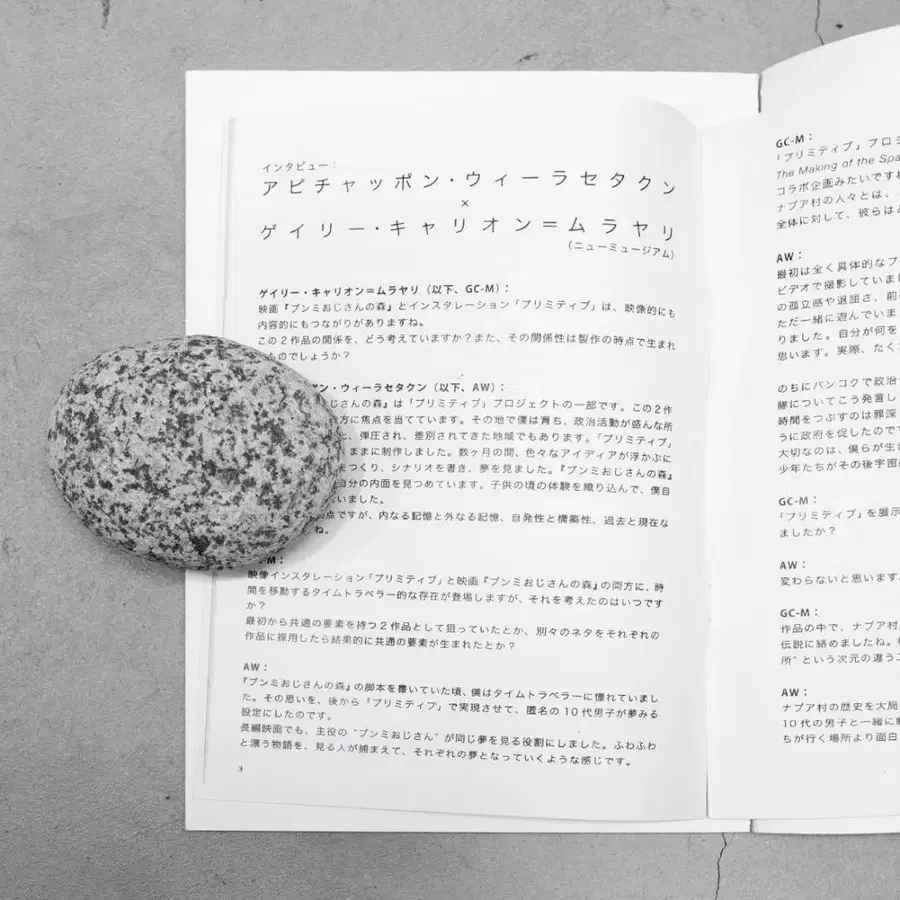 インタビュー：
アピチャッポン・ウィーラセタクン
×
ゲイリー・キャリオン＝ムラヤリ
（ニューミュージアム）
ゲイリー・キャリオン＝ムラヤリ（以下、GC-M）：
映画『ブンミおじさんの森』とインスタレーション「プリミティブ」は、映像的にも
内容的にもつながりがありますね。
この2作品の関係を、どう考えていますか？また、その関係性は製作の時点で生まれ
ものでしょうか？
ン・ウィーラセタクン（以下、AW）：
じさんの森』は「プリミティブ」プロジェクトの一部です。この2作
方に焦点を当てています。その地で僕は育ち、政治活動が盛んな所
、弾圧され、差別されてきた地域でもあります。「プリミティブ」
ままに制作しました。数ヶ月の間、色々なアイディアが浮かぶに
をつくり、シナリオを書き、夢を見ました。『ブンミおじさんの森』
自分の内面を見つめています。子供の頃の体験を織り込んで、僕自
いました。
点ですが、内なる記憶と外なる記憶、自発性と構築性、過去と現在な
ね。
M：
映像インスタレーション「プリミティブ」と映画『ブンミおじさんの森』の両方に、時
間を移動するタイムトラベラー的な存在が登場しますが、それを考えたのはいつです
か？
最初から共通の要素を持つ2作品として狙っていたとか、別々のネタをそれぞれの
作品に採用したら結果的に共通の要素が生まれたとか？
AW：
『ブンミおじさんの森』の脚本を書いていた頃、僕はタイムトラベラーに憧れていまし
た。その思いを、後から「プリミティブ」で実現させて、匿名の10代男子が夢みる
設定にしたのです。
長編映画でも、主役の“ブンミおじさん”が同じ夢を見る役割にしました。ふわふわ
と漂う物語を、見る人が捕まえて、それぞれの夢となっていくような感じです。
3
GC-M：
「プリミティブ」プロジ
The Making of the Spa
コラボ企画みたいですね
ナブア村の人々とは、
全体に対して、彼らは
AW：
最初は全く具体的なプ
ビデオで撮影していまし
の孤立感や退屈さ、前の
ただ一緒に遊んでいま
りました。自分が何を
思います。実際、たく
のちにバンコクで政治
隊についてこう発言し
時間をつぶすのは罪深
うに政府を促したので
大切なのは、僕らが生ま
少年たちがその後宇宙
GC-M：
「プリミティブ」を展示
ましたか？
AW：
変わらないと思います
GC-M：
作品の中で、ナブア村
伝説に絡めましたね。
所”という次元の違う
AW：
ナブア村の歴史を大局
10代の男子と一緒に
ちが行く場所より面白